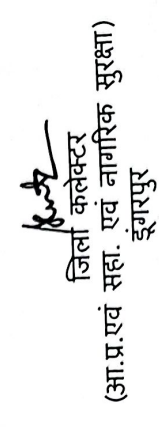 जिला कलेक्टर
(आ.प्र.एवं सहा. एवं नागरिक सुरक्षा)
डूंगरपुर